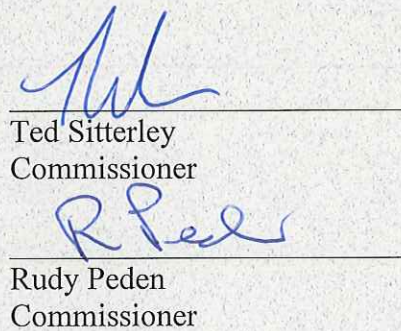 Ted Sitterley
Commissioner
R Peden
Rudy Peden
Commissioner